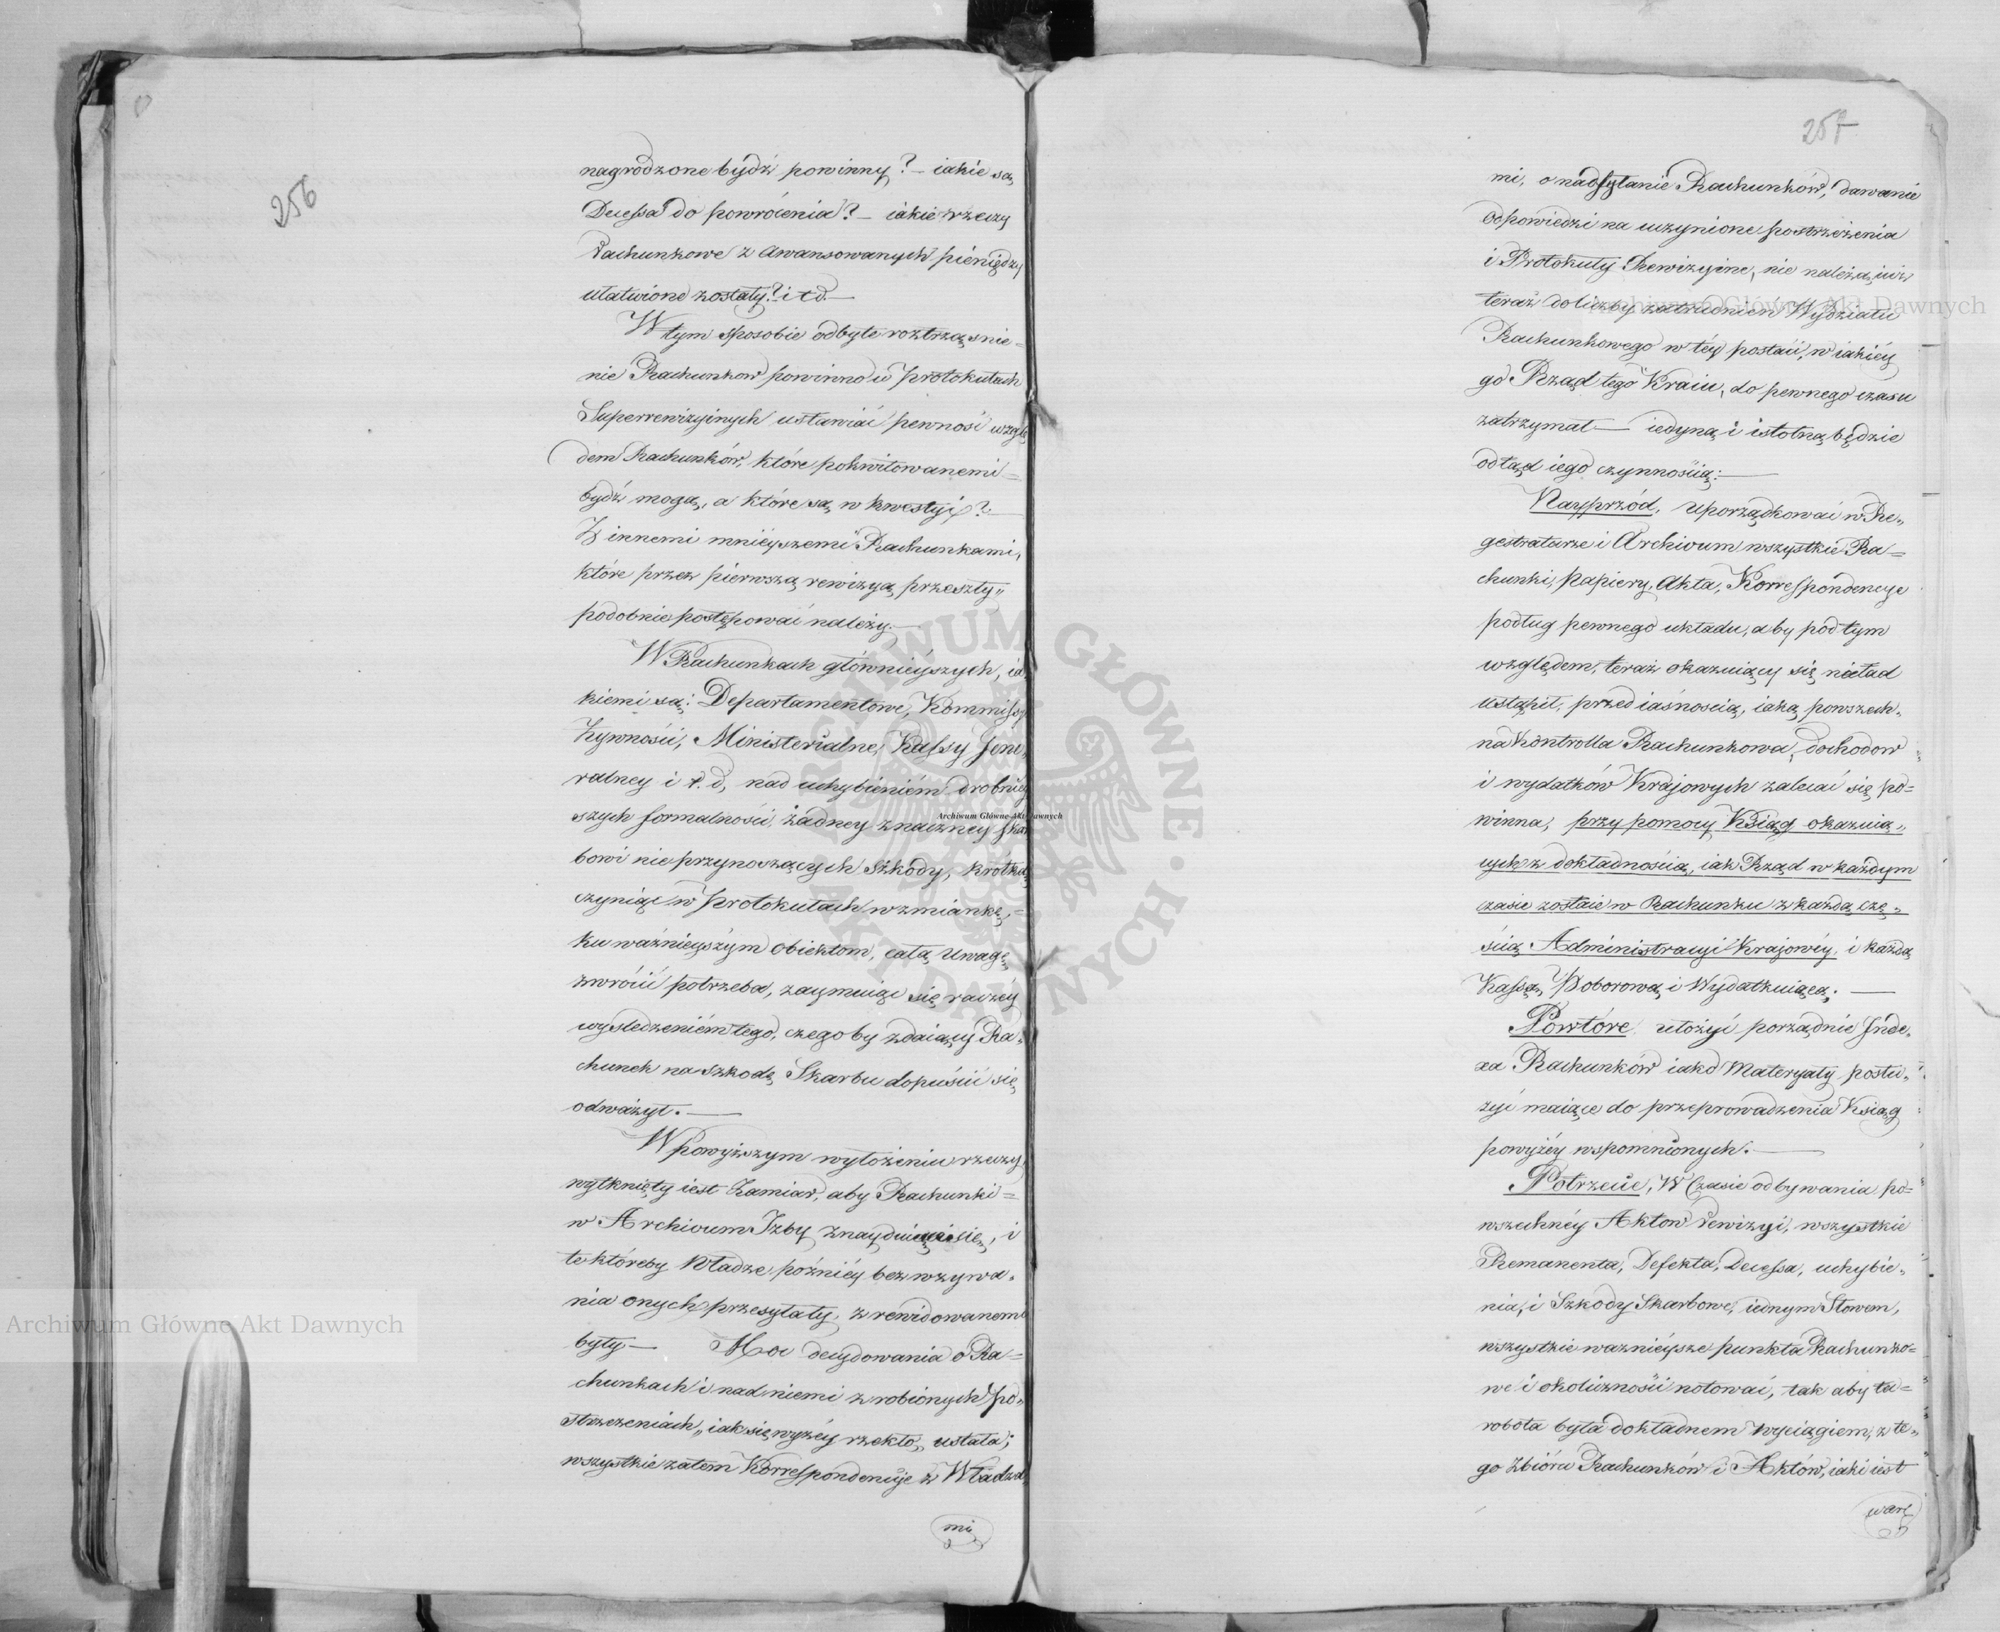 256
nagrodzone bydź powinny? — iakie są
Decessa do powrócenia? — iakie rzeczy
Rachunkowe z awansowanych pieniędzy
ułatwione zostały? i t d. —
W tym sposobie odbyte roztrząśnie=
nie Rachunkow powinno w protokułach
Superrewizyinych ustawiać pewność wzglę
dem Rachunków, które pokwitowanemi=
bydź mogą, a które są w kwestyi? —
Z innemi mnieyszemi Rachunkami,
które przez pierwszą rewizyą przeszły„
podobnie postępować należy. —
W Rachunkach główniéyszych, ia
kiemi są: Departamentowe, Kommissy
Żywności, Ministerialne, Kassy Jene„
ralney i t. d, nad uchybieniém drobniéy
szych formalności, żadney znaczney Skar
bowi nie przynoszących szkody, krótką
czyniąc w protokułach wzmiankę,=
ku ważnieyszym obiektom, całą uwagę„
zwrócić potrzeba, zaymuiąc się raczey
wyśledzeniém tego, czegoby zdaiący Ra„
chunek na szkodę Skarbu dopuścić się
odważył. —
W Powyższym wyłożeniu rzeczy,
wytknięty iest Zamiar, aby Rachunki=
w Archivum Izby znayduiące się, i
te któreby Władze późniéy bez wzywa„
nia onych przesyłały, zrewidowanemi
były — Moc decydowania o Ra=
chunkach i nad niemi zrobionych po„
strzeżeniach„ iak się wyżéy rzekło„ ustała;
wszystkie zatém Korrespondencyje z Władza
mi
257
mi, o nadsyłanie Rachunków, dawanie
odpowiedzi na uczynione postrzeżenia
i Protokuły Rewizyine, nie należą iuż
teraz do liczby zatrudnień Wydziału
Rachunkowego w téy postaci, w iakiéy
go Rząd tego Kraiu, do pewnego czasu
zatrzymał — iedyną i istotną będzie
odtąd iego czynnością: —
Nayprzód, uporządkować w Re„
gestraturze i Archivum wszystkie Ra=
chunki, Papiery, Akta, Korrespondencye
podług pewnego układu, aby pod tym
względem, teraz okazuiący się nieład
ustąpił, przed iasnością, iaką powszech„
na Kontrolla Rachunkowa, dochodow
i wydatków Krajowych zalecać się po=
winna, przy pomocy Ksiąg okazuią„
cych z dokładnością, iak Rząd w każdym
czasie zostaie w Rachunku z każdą czę„
ścią Administracyi Krajowéy, i każdą
Kassą, Poborową i Wydatkuiącą. —
Powtóre ułożyć porządnie Inde„
xa Rachunków iako Materyały posłu„
żyć maiące do przeprowadzenia Ksiąg
powyżéy wspomnionych. —
Potrzecie, W Czasie odbywania po=
wszechnéy Aktow rewizyi, wszystkie
Remanenta, Defekta, Decessa, uchybie„
nia, i Szkody Skarbowe, iednym Słowem,
wszystkie ważnieysze punkta Rachunko=
we i okoliczności notować, tak aby ta=
robota była dokładnem wyciągiem, z te„
go Zbióru Rachunków i Aktów, iaki iest
Archiwum Główne Akt Dawnych
Archiwum Główne Akt Dawnych
Archiwum Główne Akt Dawnych
ARCHIWUM GŁÓWNE • AKT DAWNYCH •